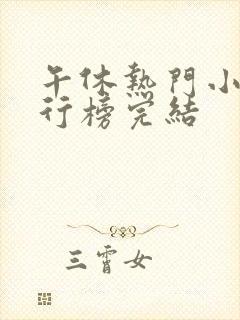 午休熱門小
行榜完結
三霄女